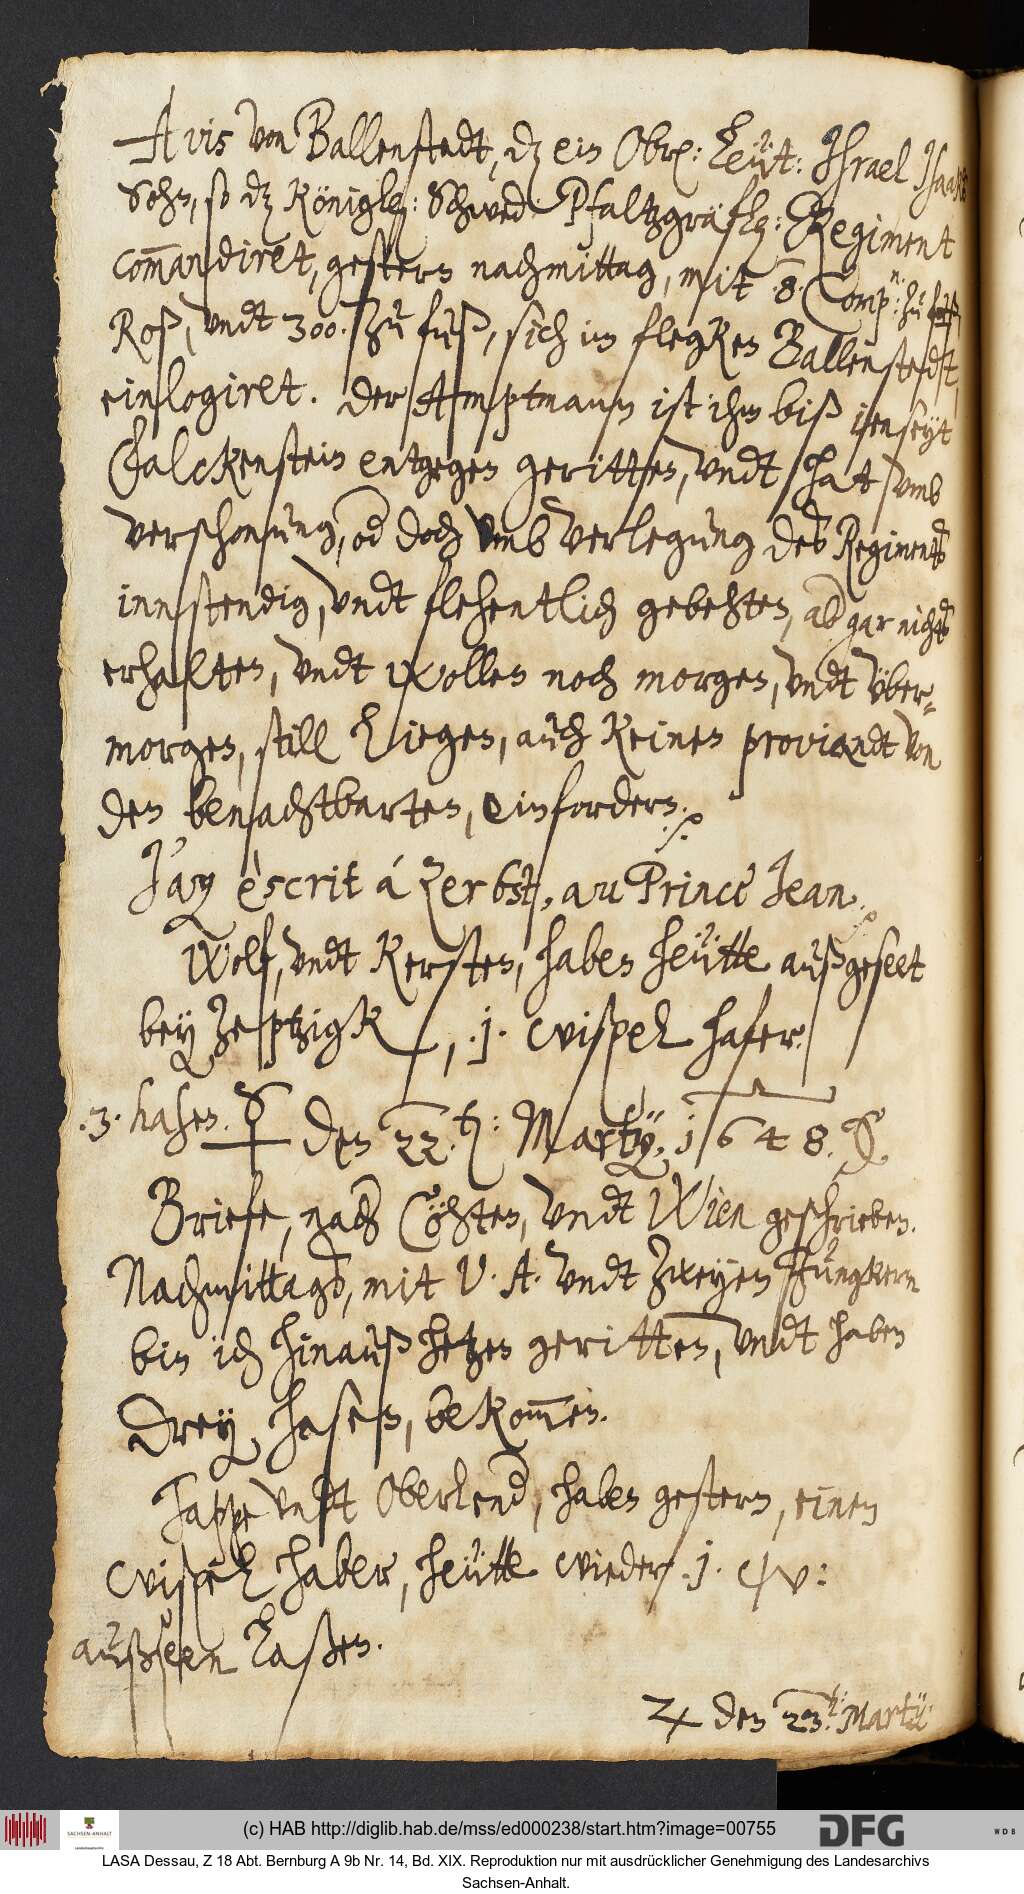 Avis von Ballenstedt, dz ein Obr: Leüt: Jsrael Jsaaks
Sohn, so dz Königl: Schwed: Pfaltzgräfl: Regiment
com̄andiret, gestern nachmittag, mit .8. Comp: zu
Roß, vndt 300. zu fuß, sich in flegken Ballenstedt,
einlogiret. Der Amptmann ist ihm biß ienseyt
Falckenstein entgegen geritten, vndt hat vmb
verschonung, od doch vmb verlegung des Regiments
innstendig, vndt flehentlich gebehten, ab gar nichts
erhalten, vndt wollen noch morgen, vndt über-
morgen, still liegen, auch keinen proviandt von
den benachtbarten, einfordern.
J'ay èscrit á Zerbst, au Prince Jean.
Wolf, vndt Kersten, haben heütte außgeseet
bey Zeptzigk, .j. wispel hafer.
.3. hasen. ☿ den 22. Martij, 1648.
Briefe, nach Cöhten, vndt Wien geschrieben.
Nachmittags, mit V. A. vndt zweyen Jungkern
bin ich hinauß hetzen geritten, vndt haben
drey hasen, bekom̄en.
Jappe vndt Oberlend, haben gestern, einen
wispel haber, heütte wieder .j. w:
außseen laßen.
♃ den 23. Martij
(c) HAB http://diglib.hab.de/mss/ed000238/start.htm?image=00755
SACHSEN-ANHALT
DFG
WDB
LASA Dessau, Z 18 Abt. Bernburg A 9b Nr. 14, Bd. XIX. Reproduktion nur mit ausdrücklicher Genehmigung des Landesarchivs
Sachsen-Anhalt.